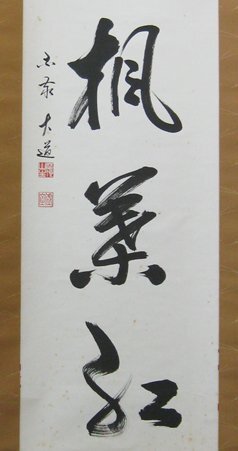 楓葉紅
大道